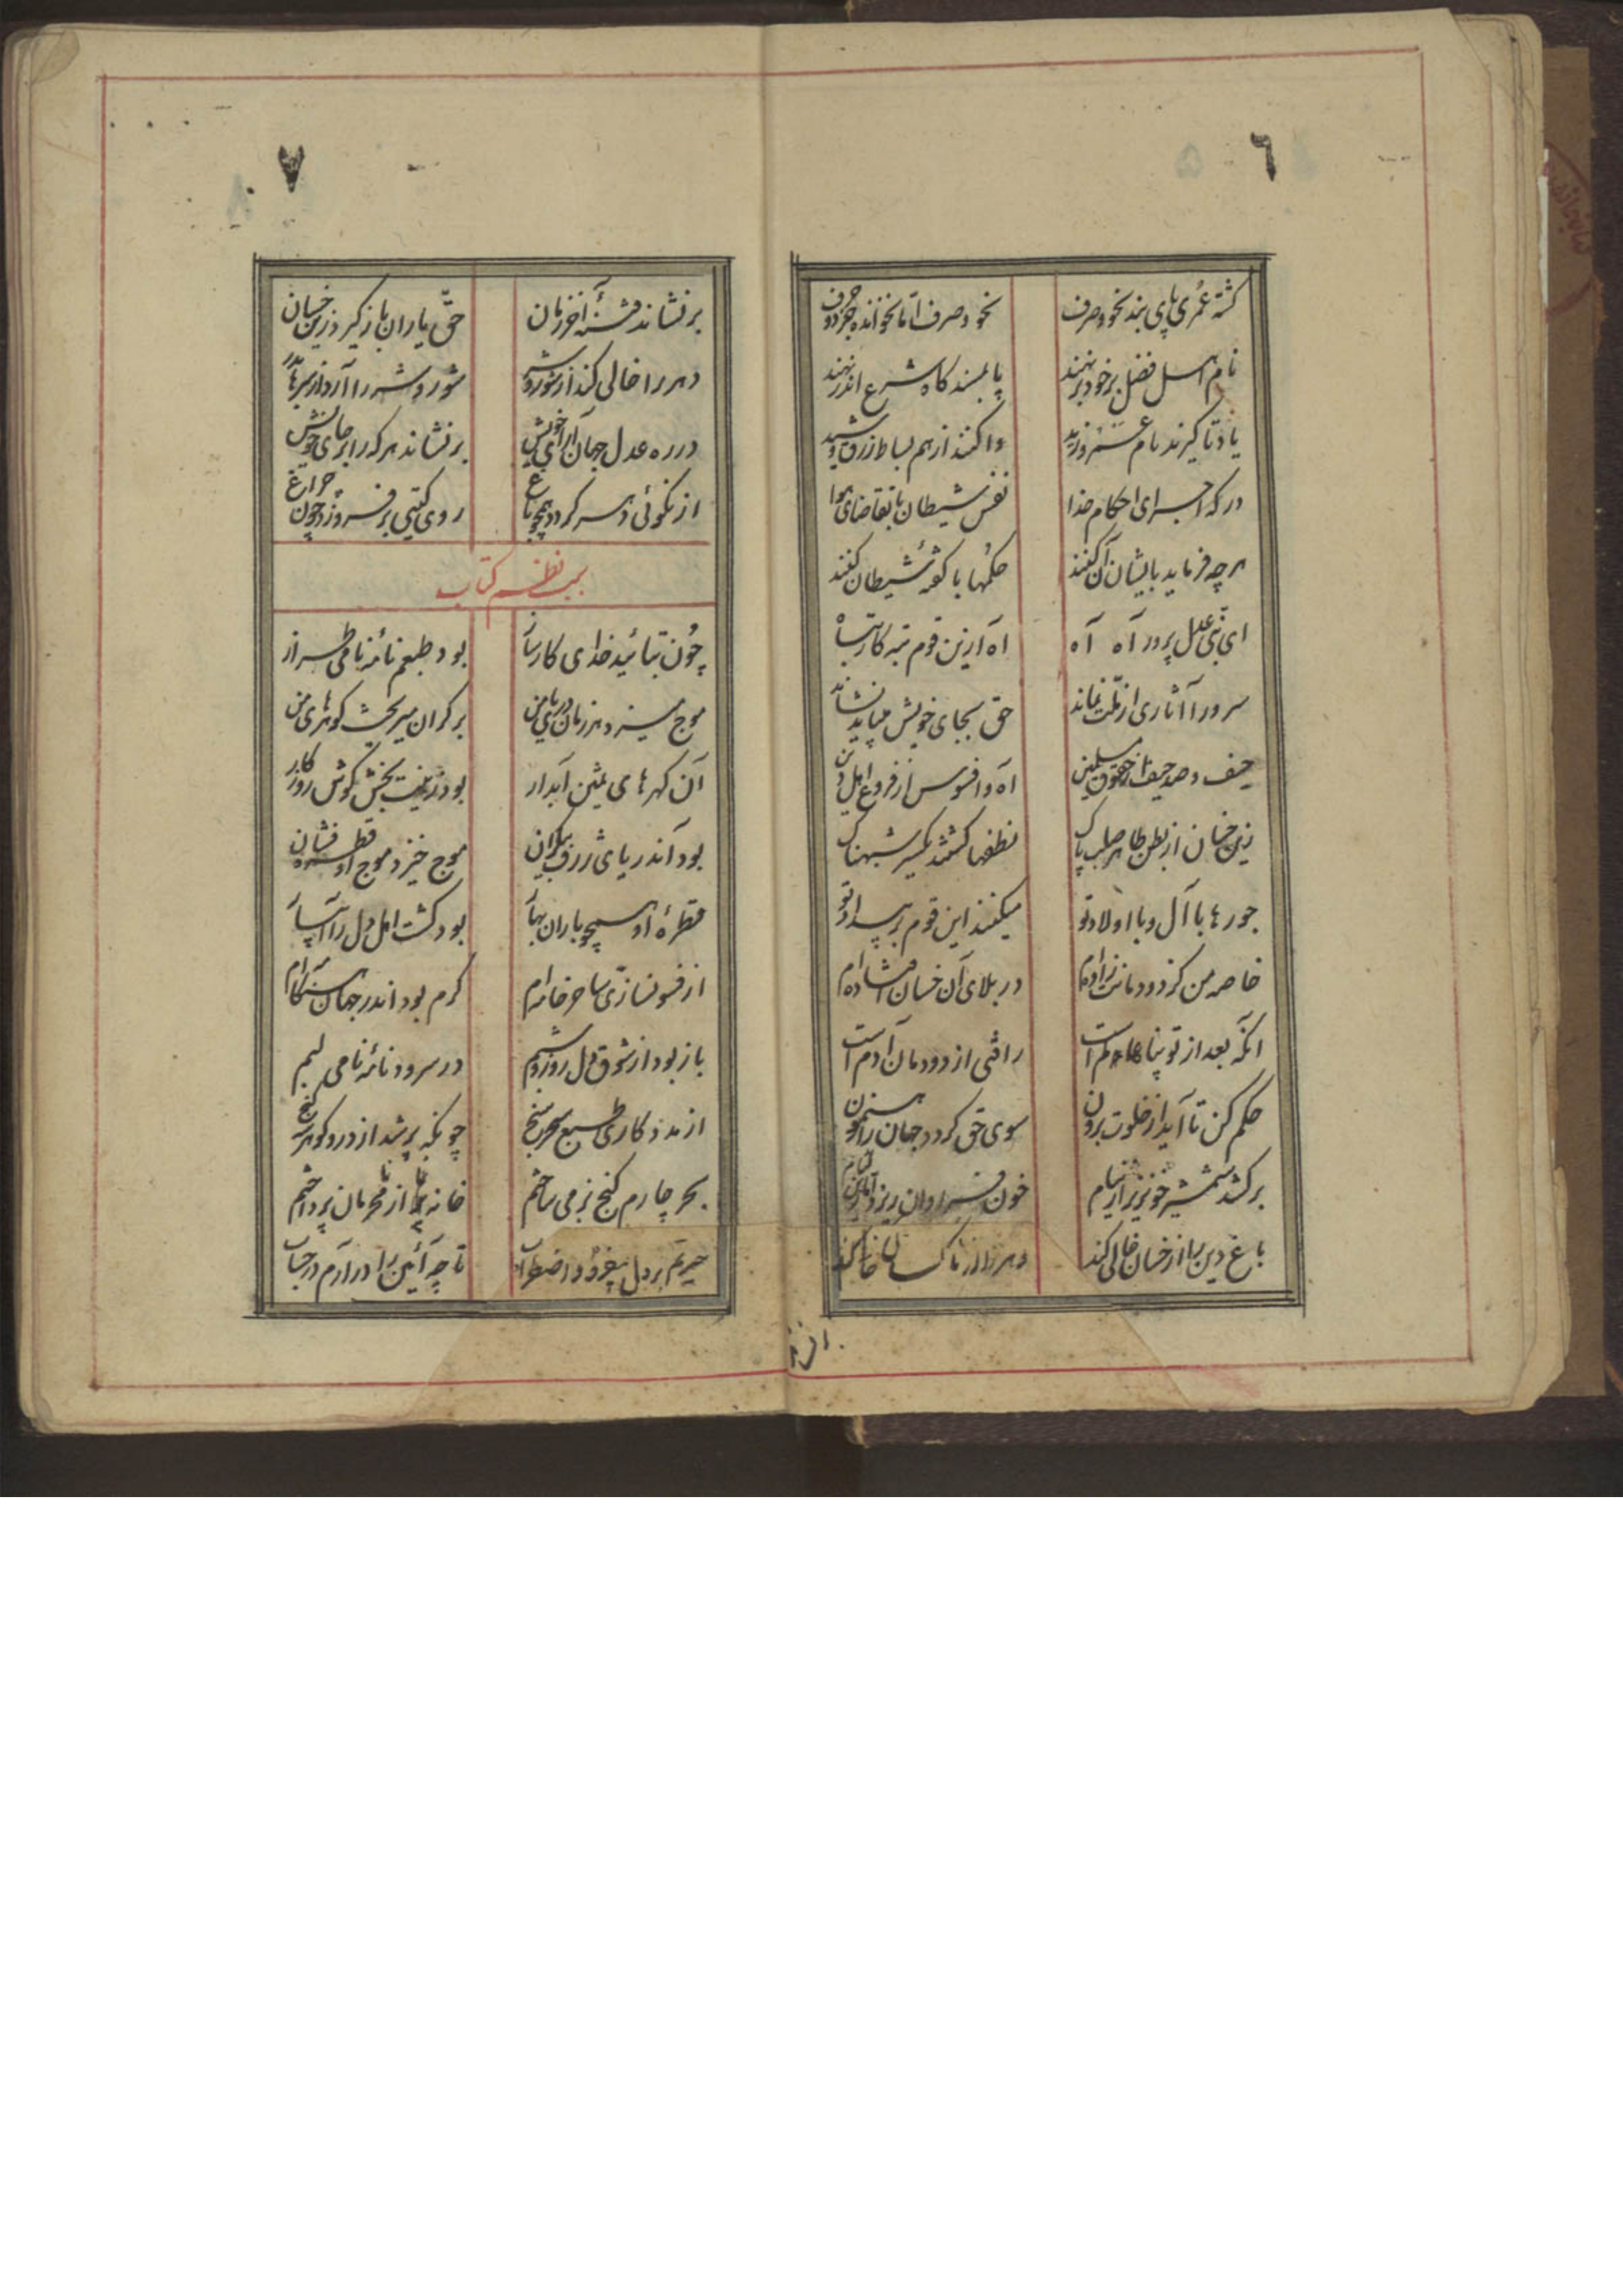 ٦
گشته عمری پای بند نحو و صرف نحو و صرف اما نخوانده جز دو حرف
نام اهل فضل بر خود بر نهند پا بمسند گاه شرع اندر نهند
یاد تا گیرند نام عمرو و زید واکنند از هم بساط زرق و شید
در گه اجرای احکام خدا نفس شیطان با تقاضای هوا
هر چه فرماید بایشان آن کنند حکمها با گفتهٔ شیطان کنند
ای نبی عدل پرور آه آه آه ازین قوم تبه کار تباه
سرورا آثاری از ملت نماند حق بجای خویش میباید نشاند
حیف و صد حیف از حقوق مسلمین آه و افسوس از فروع اهل دین
زین خسان از بطن طاهر صلب پاک نطفها گشتند یکسر شبهناک
جورها با آل و با اولاد تو میکنند این قوم بر بیداد تو
خاصه من کز دودمانت زاده ام در بلای آن خسان افتاده ام
آنکه بعد از تو پناه عالم است راقی از دودمان آدم است
حکم کن تا آید از خلوت برون سوی حق گردد جهان را رهنمون
برکشد شمشیر خونریز از نیام خون فراوان ریزد
باغ دین را از خسان خالی کند دهر را از ناکسان خالی کند
٧
برنشاند فتنهٔ آخر زمان حق یاران باز گیرد زین خسان
دهر را خالی کند از شور و شر شور و شر را آرد از سرها بدر
در ره عدل جهان آرای خویش برنشاند هر که را بر جای خویش
از نکوئی دهر گردد همچو باغ روی گیتی بر فروزد چون چراغ
سبب نظم کتاب
چون بتائید خدای کارساز بود طبعم نامهٔ نامی طراز
موج میزد هر زمان دریای من بر کران میریخت گوهرهای من
آن گهرهای ثمین آبدار بود زینت بخش گوش روزگار
بود آن دریای ژرف بیکران موج خیز و موج او قطره فشان
قطرهٔ او همچو باران بهار بود کشت اهل دل را آبیار
از فسونسازی ساحر خامه ام گرم بود اندر جهان هنگامه ام
باز بود از شوق دل روز و شبم در سرود نامهٔ نامی لبم
از مددکاری طبع سحر سنج چونکه پر شد از در و گوهر سه گنج
بحر چارم گنج بزمی ساختم خانه را از محرمان پرداختم
حیرتم بر دل فزود و اضطراب تا چه آئین را در آرم در حساب